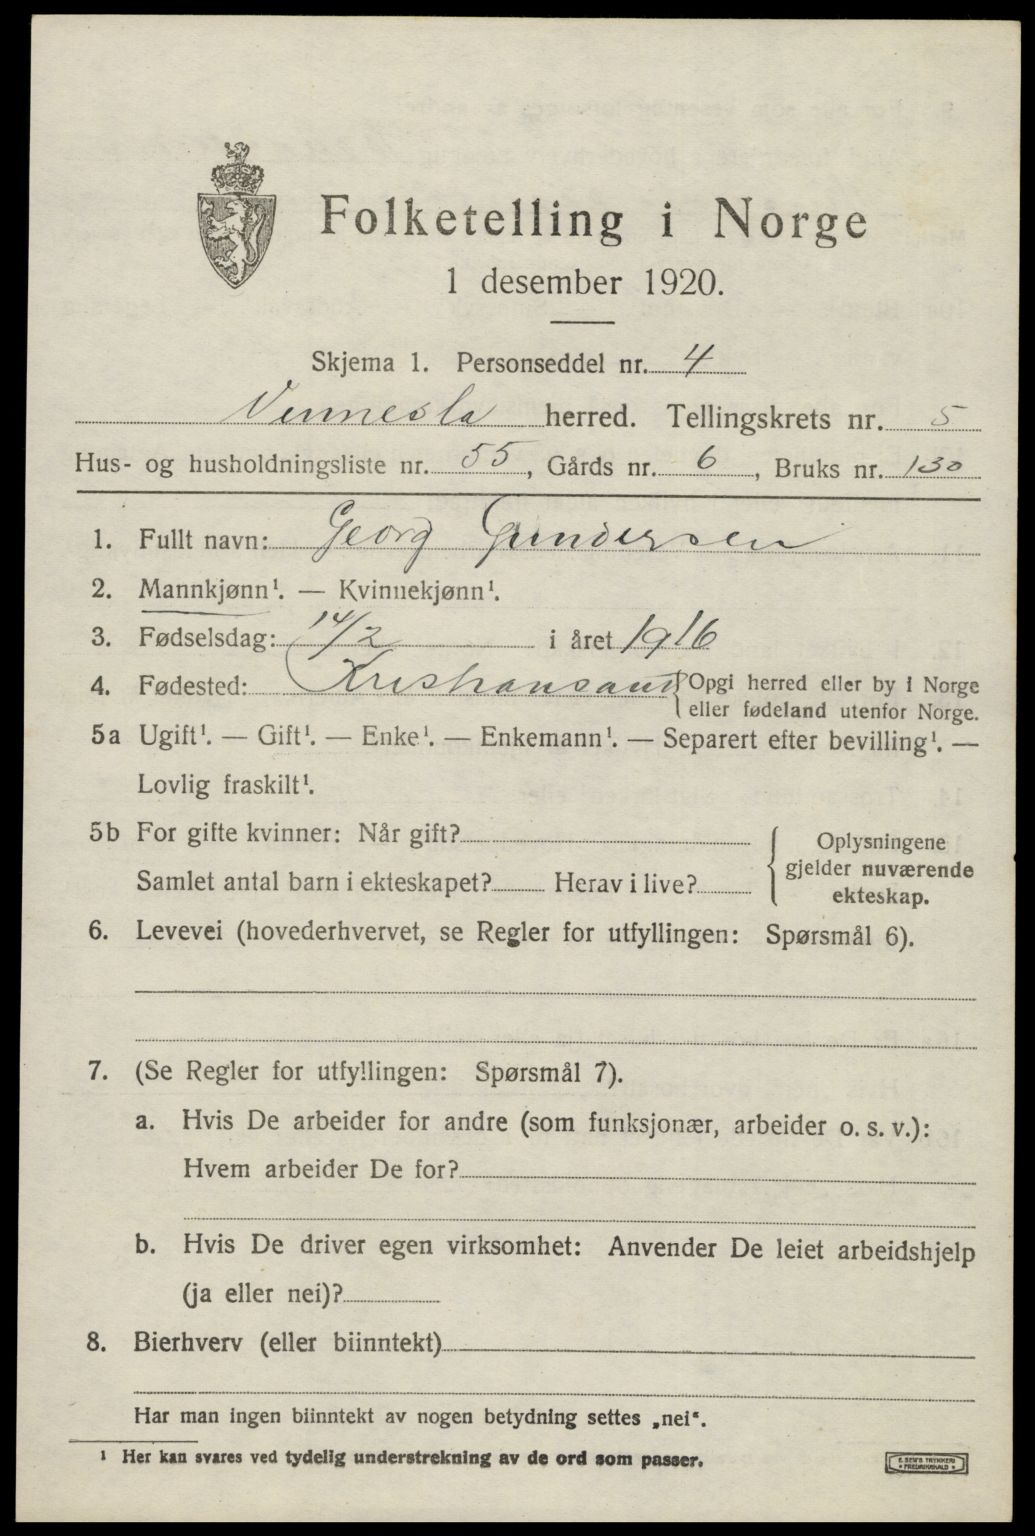 Folketelling i Norge
1 desember 1920.
Skjema 1. Personseddel nr. 4
Vennesla herred. Tellingskrets nr. 5
Hus- og husholdningsliste nr. 55, Gårds nr. 6, Bruks nr. 130
1. Fullt navn: Georg Gundersen
2. Mannkjønn¹. — Kvinnekjønn¹.
3. Fødselsdag: 14/2 i året 1916
4. Fødested: Kristiansand { Opgi herred eller by i Norge
eller fødeland utenfor Norge.
5a Ugift¹. — Gift¹. — Enke¹. — Enkemann¹. — Separert efter bevilling¹. —
Lovlig fraskilt¹.
5b For gifte kvinner: Når gift?
Samlet antal barn i ekteskapet? Herav i live?
Oplysningene
gjelder nuværende
ekteskap.
6. Levevei (hovederhvervet, se Regler for utfyllingen: Spørsmål 6).
7. (Se Regler for utfyllingen: Spørsmål 7).
a. Hvis De arbeider for andre (som funksjonær, arbeider o. s. v.):
Hvem arbeider De for?
b. Hvis De driver egen virksomhet: Anvender De leiet arbeidshjelp
(ja eller nei)?
8. Bierhverv (eller biinntekt)
Har man ingen biinntekt av nogen betydning settes „nei“.
¹ Her kan svares ved tydelig understrekning av de ord som passer.
E. SEM'S TRYKKERI
• FREDRIKSHALD •